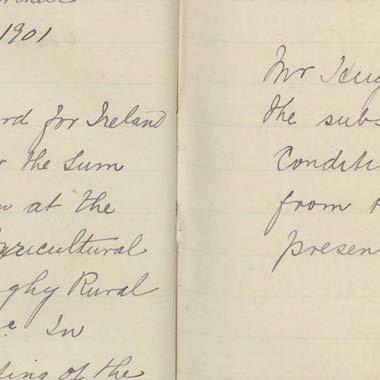 1901
for Ireland
the Sum
at the
Agricultural
Rural
In
of the
Mr
the subs
Conditi
from
presen